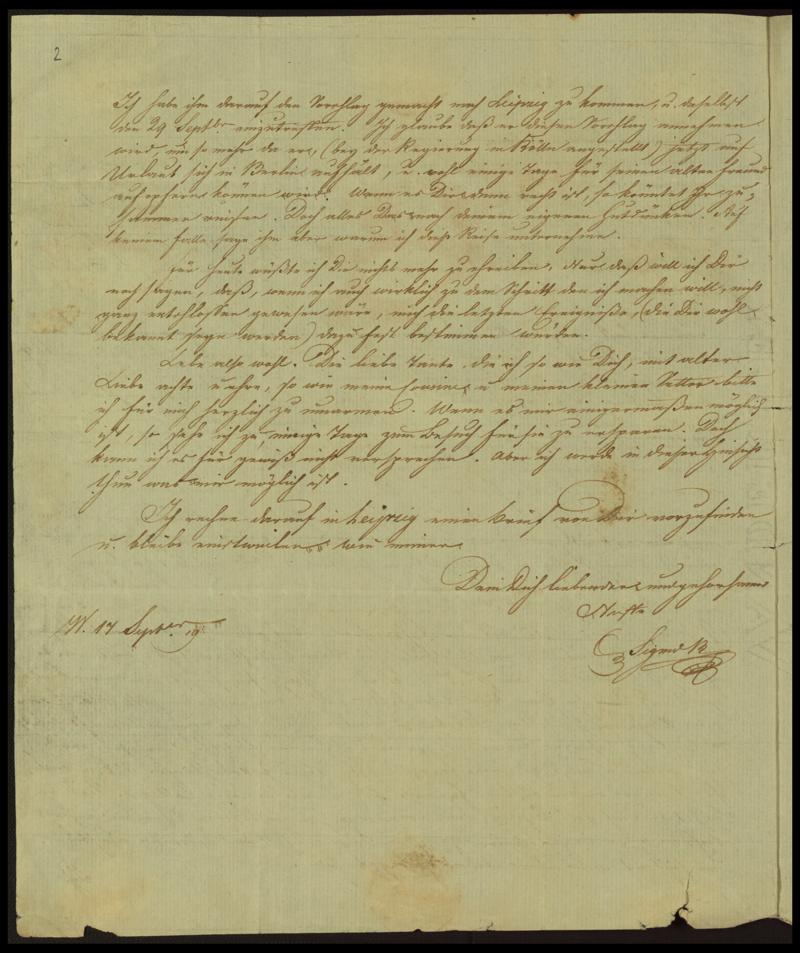 2
Ich habe ihm darauf den Vorschlag gemacht nach Leipzig zu kommen, u. daselbst
den 29 Septbr einzutreffen. Ich glaube daß er diesen Vorschlag annehmen
wird, um so mehr da er, (bey der Regierung in Kölln angestellt) jetzt auf
Urlaub sich in Berlin aufhält, u. wohl einige Tage für seinen alten Freund
aufopfern können wird. Wenn es Dir dann recht ist, so könntet Ihr zu=
sammen reisen. Doch alles Das nach deinem eigenen Gutdünken. Auf
keinem Falle sage ihm aber warum ich diese Reise unternehme.
Für heute wüßte ich Dir nichts mehr zu schreiben. Nur daß will ich Dir
noch sagen, daß, wenn ich auch wirklich zu dem Schritt den ich machen will, nicht
ganz entschlossen gewesen wäre, mich die letzten Ereigniße, (die Dir wohl
bekannt seyn werden) dazu fest bestimmen würden.
Lebe also wohl. Die liebe Tante, die ich so wie Dich, mit alter
Liebe achte u. ehre, so wie meine Cousine u meinen kleinen Vetter bitte
ich für mich herzlich zu umarmen. Wenn es mir einigermaßen möglich
ist, so sehe ich zu einige Tage zum Besuch für sie zu ersparen. Doch
kann ich es für gewiß nicht versprechen. Aber ich werde in dieser Hinsicht
thun was mir möglich ist.
Ich rechne darauf in Leipzig einen Brief von Dir vorzufinden
u. bleibe einstweilen wie immer
Dein Dich liebender und gehorsamer
Neffe
Sigmd
W. 17 Septbr 19